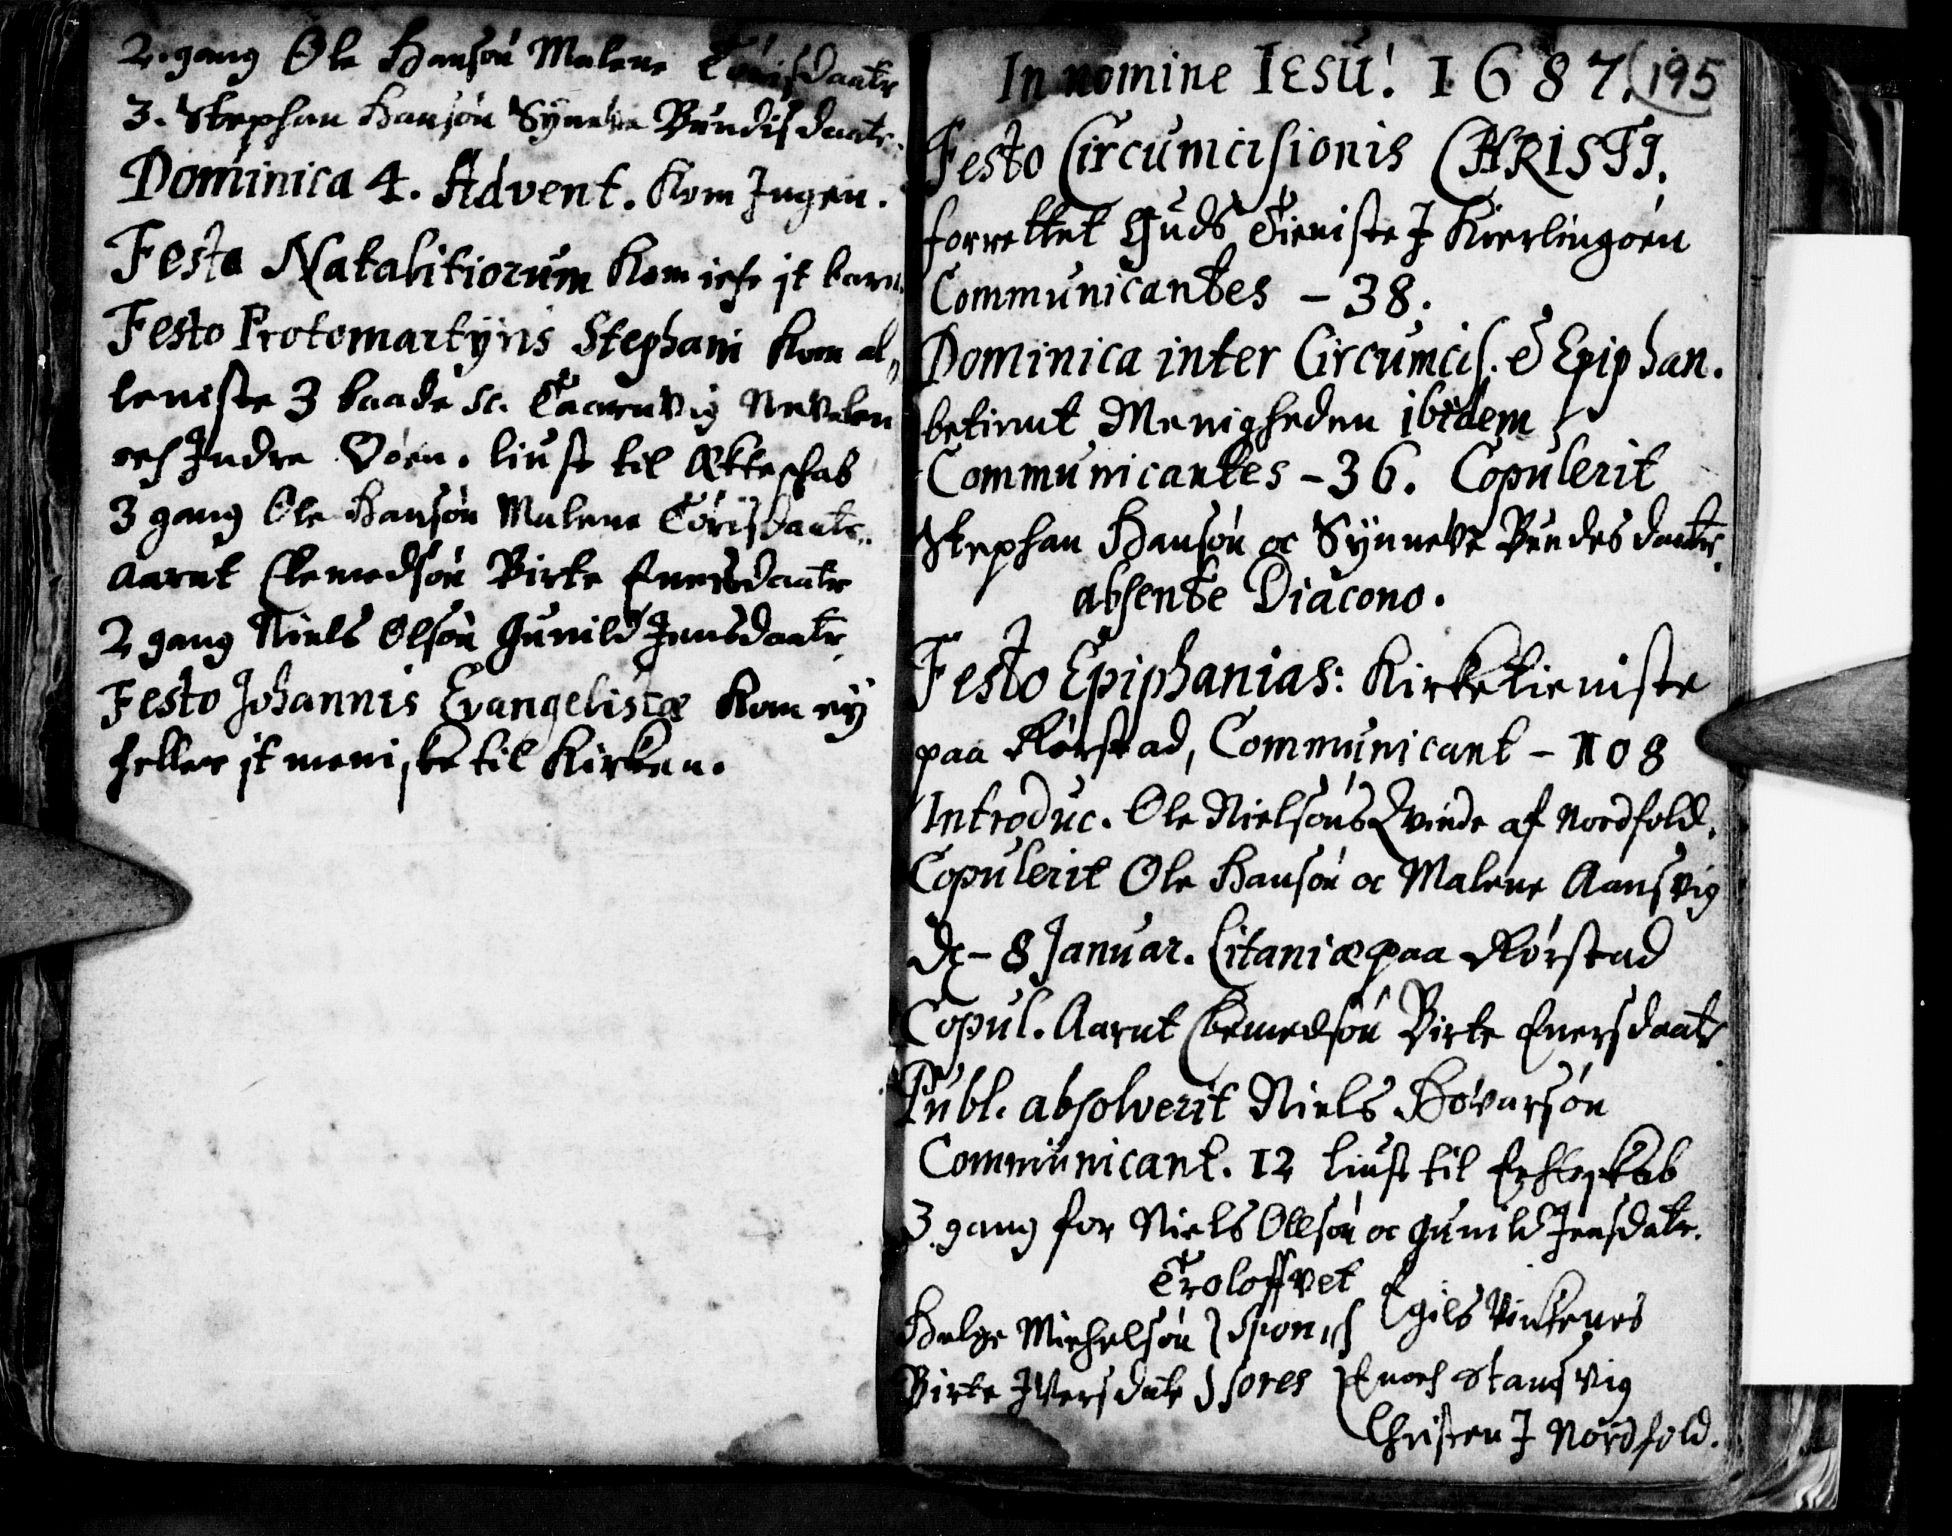 2. gang Ole Hansøn Malene Tørisdaatr
3. Stephan Hansøn Synneve Bundisdaatr.
Dominica 4. Advent. kom Ingen.
Festo Natalitiorum kom icke it barn
Festo Protomartyris Stephani kom al„
leniste 3 baade sc. Nevelen
och Indre Øøen. liust til Ækteskab
3 gang Ole Hansøn Malene Tørisdaatr.
Aarnt Clemedsøn Birte Enersdaatr
2 gang Niels Olsøn Gunild Jensdaatr
Festo Johannis Evangelistæ kom ey
heller it meniske til Kirken.
In nomine IESU! 1687. 195
Festo Circumcisionis CHRISTI.
forrettet Guds Tieniste I Kierlingøen
Communicantes – 38.
Dominica inter Circumcis. & Epiphan.
betient Menigheden ibidem
Communicantes – 36. Copulerit
Stephan Hansøn oc Synneve Bundesdaatr.
absente Diacono.
Festo Epiphanias: Kirketieniste
paa Rørstad, Communicant – 108
Introduc. Ole Nielsøns Qvinde af Nordfold.
Copulerit Ole Hansøn oc Malene Aansvig
D – 8 Januar. Litaniæ paa Rørstad
Copul. Aarnt Clemedsøn Birte Enersdaatr
Publ. absolverit Niels Høvarsøn
Communicant. 12 liust til Echteskab
3 gang for Niels Ollsøn oc Gunild Jensdatr.
Troloffvet
Helge Michelsøn } Spon„ { Egils Vinkenes
Birte Iversdatr } sores } Enoch Stansvig
Christen I Nordfold.